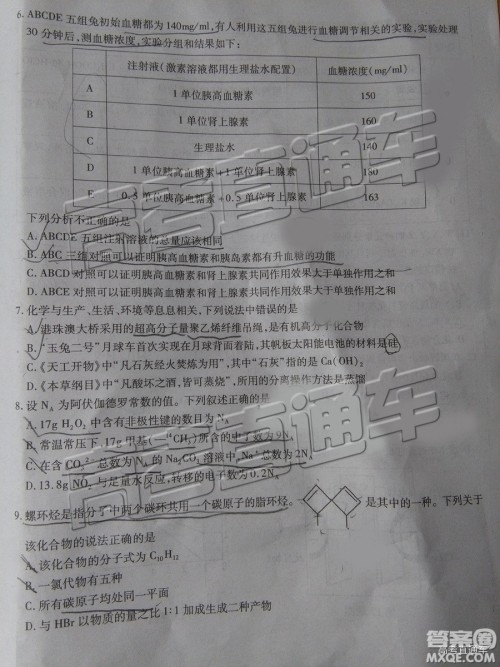 6. ABCDE 五组兔初始血糖都为140mg/ml，有人利用这五组兔进行血糖调节相关的实验，实验处理
30分钟后，测血糖浓度，实验分组和结果如下：
注射液（激素溶液都用生理盐水配置） 血糖浓度（mg/ml）
A 1单位胰高血糖素 150
B 1单位肾上腺素 160
C 生理盐水 140
D 1单位胰高血糖素+1单位肾上腺素 180
E 0.5单位胰高血糖素+0.5单位肾上腺素 163
下列分析不正确的是
A. ABCDE五组注射溶液的总量应该相同
B. ABC三组对照可以证明胰高血糖素和胰岛素都有升血糖的功能
C. ABCD对照可以证明胰高血糖素和肾上腺素共同作用效果大于单独作用之和
D. ABCE对照可以证明胰高血糖素和肾上腺素共同作用效果大于单独作用之和
7. 化学与生产、生活、环境等息息相关，下列说法中错误的是
A. 港珠澳大桥采用的超高分子量聚乙烯纤维吊绳，是有机高分子化合物
B. "玉兔二号"月球车首次实现在月球背面着陆，其帆板太阳能电池的材料是硅
C.《天工开物》中"凡石灰经火焚炼为用"，其中"石灰"指的是Ca(OH)₂
D.《本草纲目》中"凡酸坏之酒，皆可蒸烧"，所用的分离操作方法是蒸馏
8. 设Nₐ为阿伏伽德罗常数的值。下列叙述正确的是
A. 17g H₂O₂中含有非极性键的数目为Nₐ
B. 常温常压下，17g甲基(—¹⁴CH₃)所含的中子数为9Nₐ
C. 在含CO₃²⁻总数为Nₐ的Na₂CO₃溶液中，Na⁺总数为2Nₐ
D. 13.8g NO₂与足量水反应，转移的电子数为0.2Nₐ
9. 螺环烃是指分子中两个碳环共用一个碳原子的脂环烃。 是其中的一种。下列关于
该化合物的说法正确的是
A. 该化合物的分子式为C₁₀H₁₂
B. 一氯代物有五种
C. 所有碳原子均处同一平面
D. 与HBr以物质的量之比1:1加成生成二种产物
高考直通车
高考直通车
高考直通车
答案圈
MXQE.COM
@高考直通车